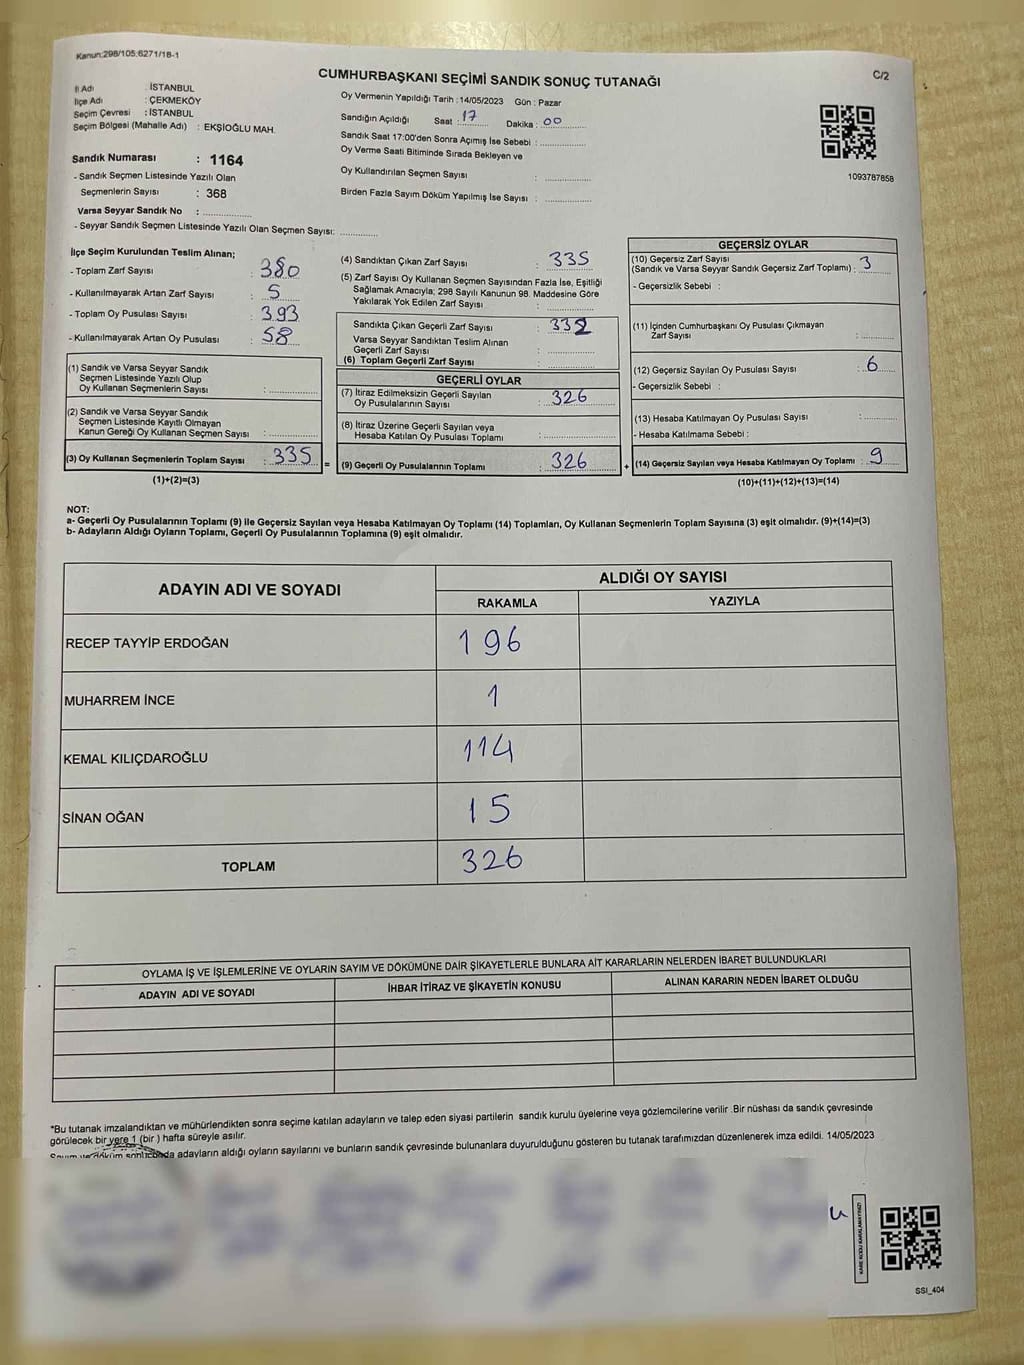 Kanun:298/105;6271/18-1
C/2
CUMHURBAŞKANI SEÇİMİ SANDIK SONUÇ TUTANAĞI
İl Adı : İSTANBUL
İlçe Adı : ÇEKMEKÖY
Seçim Çevresi : İSTANBUL
Seçim Bölgesi (Mahalle Adı) : EKŞİOĞLU MAH.
Sandık Numarası : 1164
- Sandık Seçmen Listesinde Yazılı Olan
Seçmenlerin Sayısı : 368
Varsa Seyyar Sandık No : ..............
- Seyyar Sandık Seçmen Listesinde Yazılı Olan Seçmen Sayısı: ............
Oy Vermenin Yapıldığı Tarih : 14/05/2023 Gün : Pazar
Sandığın Açıldığı Saat : 17 Dakika : 00
Sandık Saat 17:00'den Sonra Açımış İse Sebebi : ..............
Oy Verme Saati Bitiminde Sırada Bekleyen ve
Oy Kullandırılan Seçmen Sayısı : ..............
Birden Fazla Sayım Döküm Yapılmış İse Sayısı : ..............
1093787858
İlçe Seçim Kurulundan Teslim Alınan;
- Toplam Zarf Sayısı : 380
- Kullanılmayarak Artan Zarf Sayısı : 5
- Toplam Oy Pusulası Sayısı : 393
- Kullanılmayarak Artan Oy Pusulası : 58
(1) Sandık ve Varsa Seyyar Sandık
Seçmen Listesinde Yazılı Olup
Oy Kullanan Seçmenlerin Sayısı : ..............
(2) Sandık ve Varsa Seyyar Sandık
Seçmen Listesinde Kayıtlı Olmayan
Kanun Gereği Oy Kullanan Seçmen Sayısı : ..............
(3) Oy Kullanan Seçmenlerin Toplam Sayısı : 335
(1)+(2)=(3)
=
(4) Sandıktan Çıkan Zarf Sayısı : 335
(5) Zarf Sayısı Oy Kullanan Seçmen Sayısından Fazla İse, Eşitliği
Sağlamak Amacıyla; 298 Sayılı Kanunun 98. Maddesine Göre
Yakılarak Yok Edilen Zarf Sayısı : ..............
Sandıkta Çıkan Geçerli Zarf Sayısı : 332
Varsa Seyyar Sandıktan Teslim Alınan
Geçerli Zarf Sayısı : ..............
(6) Toplam Geçerli Zarf Sayısı : ..............
GEÇERLİ OYLAR
(7) İtiraz Edilmeksizin Geçerli Sayılan
Oy Pusulalarının Sayısı : 326
(8) İtiraz Üzerine Geçerli Sayılan veya
Hesaba Katılan Oy Pusulası Toplamı : ..............
(9) Geçerli Oy Pusulalarının Toplamı : 326
+
GEÇERSİZ OYLAR
(10) Geçersiz Zarf Sayısı
(Sandık ve Varsa Seyyar Sandık Geçersiz Zarf Toplamı) : 3
- Geçersizlik Sebebi :
(11) İçinden Cumhurbaşkanı Oy Pusulası Çıkmayan
Zarf Sayısı : ..............
(12) Geçersiz Sayılan Oy Pusulası Sayısı : 6
- Geçersizlik Sebebi :
(13) Hesaba Katılmayan Oy Pusulası Sayısı : ..............
- Hesaba Katılmama Sebebi :
(14) Geçersiz Sayılan veya Hesaba Katılmayan Oy Toplamı : 9
(10)+(11)+(12)+(13)=(14)
NOT:
a- Geçerli Oy Pusulalarının Toplamı (9) ile Geçersiz Sayılan veya Hesaba Katılmayan Oy Toplamı (14) Toplamları, Oy Kullanan Seçmenlerin Toplam Sayısına (3) eşit olmalıdır. (9)+(14)=(3)
b- Adayların Aldığı Oyların Toplamı, Geçerli Oy Pusulalarının Toplamına (9) eşit olmalıdır.
ADAYIN ADI VE SOYADI
ALDIĞI OY SAYISI
RAKAMLA YAZIYLA
RECEP TAYYİP ERDOĞAN 196
MUHARREM İNCE 1
KEMAL KILIÇDAROĞLU 114
SİNAN OĞAN 15
TOPLAM 326
OYLAMA İŞ VE İŞLEMLERİNE VE OYLARIN SAYIM VE DÖKÜMÜNE DAİR ŞİKAYETLERLE BUNLARA AİT KARARLARIN NELERDEN İBARET BULUNDUKLARI
ADAYIN ADI VE SOYADI İHBAR İTİRAZ VE ŞİKAYETİN KONUSU ALINAN KARARIN NEDEN İBARET OLDUĞU
*Bu tutanak imzalandıktan ve mühürlendikten sonra seçime katılan adayların ve talep eden siyasi partilerin sandık kurulu üyelerine veya gözlemcilerine verilir .Bir nüshası da sandık çevresinde
görülecek bir yere 1 (bir ) hafta süreyle asılır.
Sayım ve döküm sonucunda adayların aldığı oyların sayılarını ve bunların sandık çevresinde bulunanlara duyurulduğunu gösteren bu tutanak tarafımızdan düzenlenerek imza edildi. 14/05/2023
KARE KODU KARALAMAYINIZ!
SSI_404